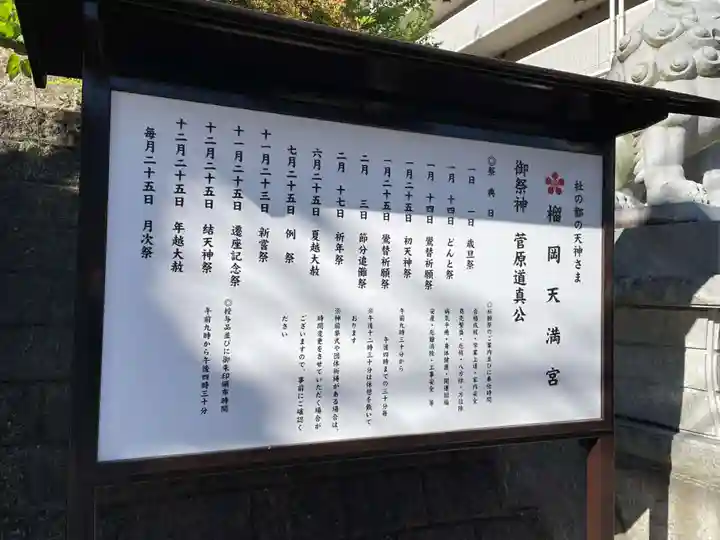 杜の都の天神さま
榴岡天満宮
御祭神 菅原道真公
◎祭典日
一月 一日 歳旦祭
一月 十四日 どんと祭
一月 十四日 鷽替祈願祭
一月二十五日 初天神祭
一月二十五日 鷽替祈願祭
二月 三日 節分追儺祭
二月 十七日 祈年祭
六月二十五日 夏越大祓
七月二十五日 例祭
十一月二十三日 新嘗祭
十一月二十五日 遷座記念祭
十二月二十五日 結天神祭
十二月二十五日 年越大祓
毎月二十五日 月次祭
◎祈願祭のご案内並びに奉仕時間
合格成就・学業上達・家内安全
商売繁盛・厄祓・八方除・方位除
病気平癒・身体健康・開運招福
安産・交通消除・工事安全 等
午前九時三十分から
午後四時までの三十分毎
※午後十二時三十分は休憩を戴いて
おります
※神前挙式や団体祈祷がある場合は、
時間変更をさせていただく場合が
ございますので、事前にご確認く
ださい
◎授与品並びに御朱印頒布時間
午前九時から午後四時三十分